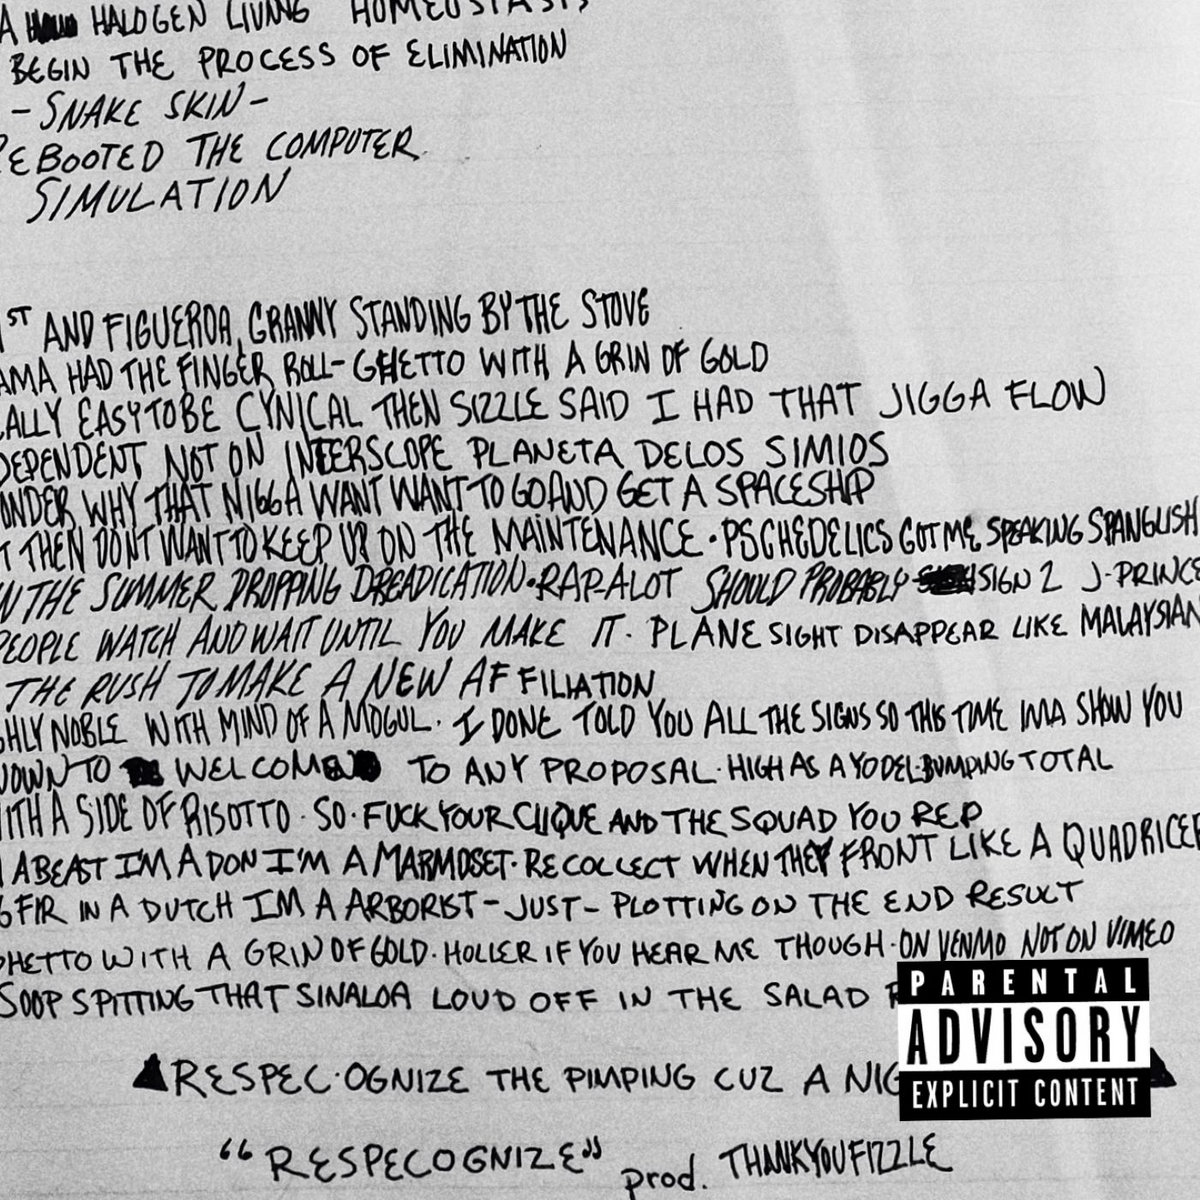 A HALOGEN LIVING HOMEOSTASIS
BEGIN THE PROCESS OF ELIMINATION
- SNAKE SKIN -
REBOOTED THE COMPUTER
SIMULATION
1ST AND FIGUEROA, GRANNY STANDING BY THE STOVE
AMA HAD THE FINGER ROLL - GHETTO WITH A GRIN OF GOLD
CALLY EASY TO BE CYNICAL THEN SIZZLE SAID I HAD THAT JIGGA FLOW
DEPENDENT NOT ON INTERSCOPE PLANETA DELOS SIMIOS
ONDER WHY THAT NIGGA WANT WANT TO GO AND GET A SPACESHIP
T THEN DONT WANT TO KEEP UP ON THE MAINTENANCE · PSCHEDELICS GOT ME SPEAKING SPANGLISH
IN THE SUMMER DROPPING DREADICATION · RAP-ALOT SHOULD PROBABLY SIGN 2 J-PRINCE
PEOPLE WATCH AND WAIT UNTIL YOU MAKE IT · PLANE SIGHT DISAPPEAR LIKE MALAYSIAN
THE RUSH TO MAKE A NEW AFFILIATION
GHLY NOBLE WITH MIND OF A MOGUL · I DONE TOLD YOU ALL THE SIGNS SO THIS TIME IMA SHOW YOU
DOWN TO WELCOME TO ANY PROPOSAL · HIGH AS A YODEL · BUMPING TOTAL
WITH A SIDE OF RISOTTO · SO · FUCK YOUR CLIQUE AND THE SQUAD YOU REP
A BEAST I'M A DON I'M A MARMOSET · RECOLLECT WHEN THEY FRONT LIKE A QUADRICEP
G FIR IN A DUTCH IM A ARBORIST - JUST - PLOTTING ON THE END RESULT
GHETTO WITH A GRIN OF GOLD · HOLLER IF YOU HEAR ME THOUGH · ON VENMO NOT ON VIMEO
SOOP SPITTING THAT SINALOA LOUD OFF IN THE SALAD
RESPEC·OGNIZE THE PIMPING CUZ A NIG
"RESPECOGNIZE" prod. THANKYOUFIZZLE
PARENTAL
ADVISORY
EXPLICIT CONTENT